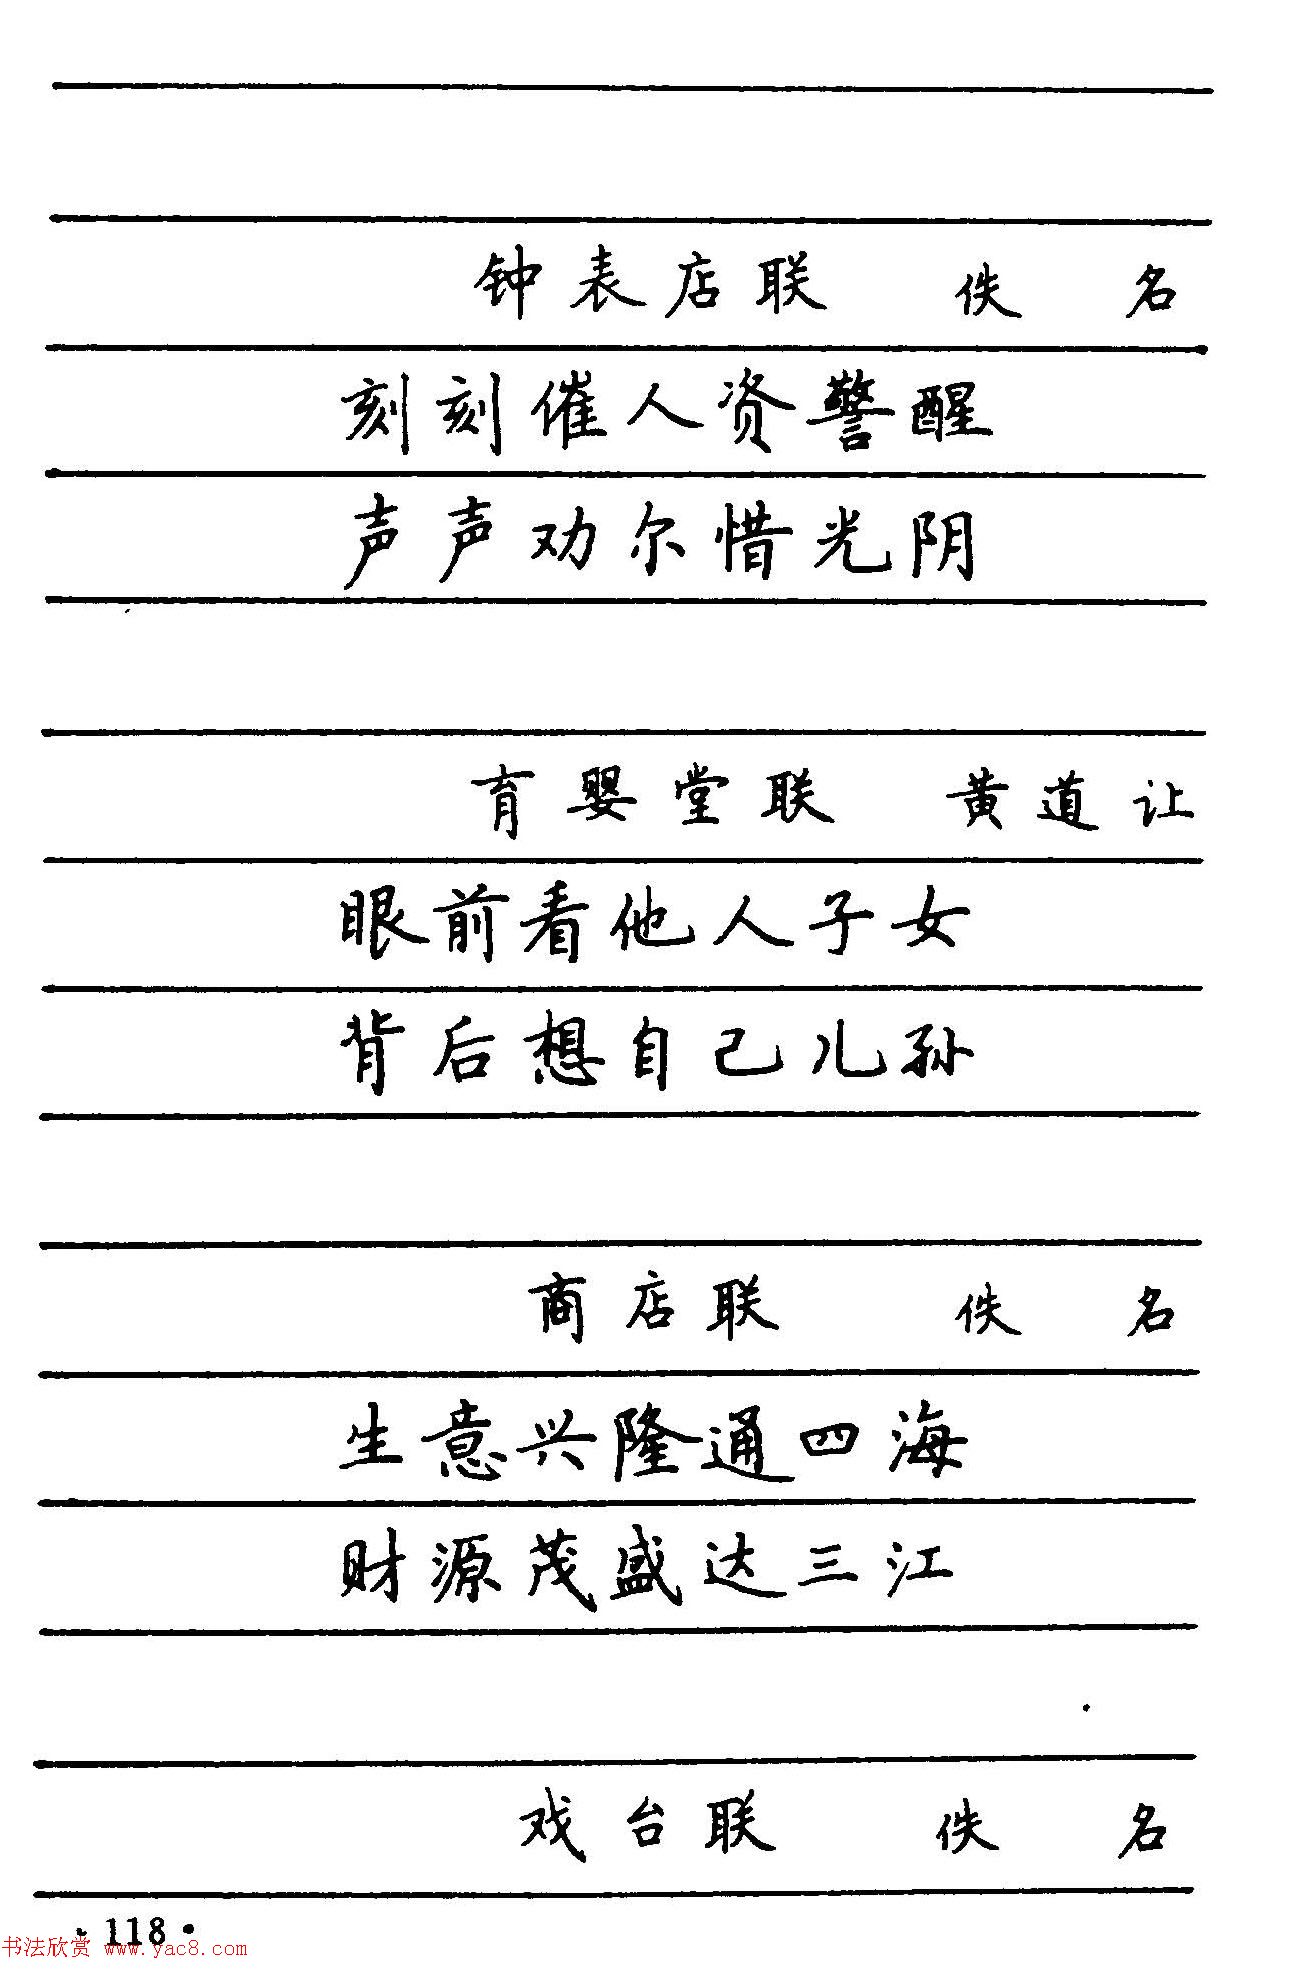 钟表店联 佚名
刻刻催人资警醒
声声劝尔惜光阴
育婴堂联 黄道让
眼前看他人子女
背后想自己儿孙
商店联 佚名
生意兴隆通四海
财源茂盛达三江
戏台联 佚名
·118·
书法欣赏 www.yac8.com